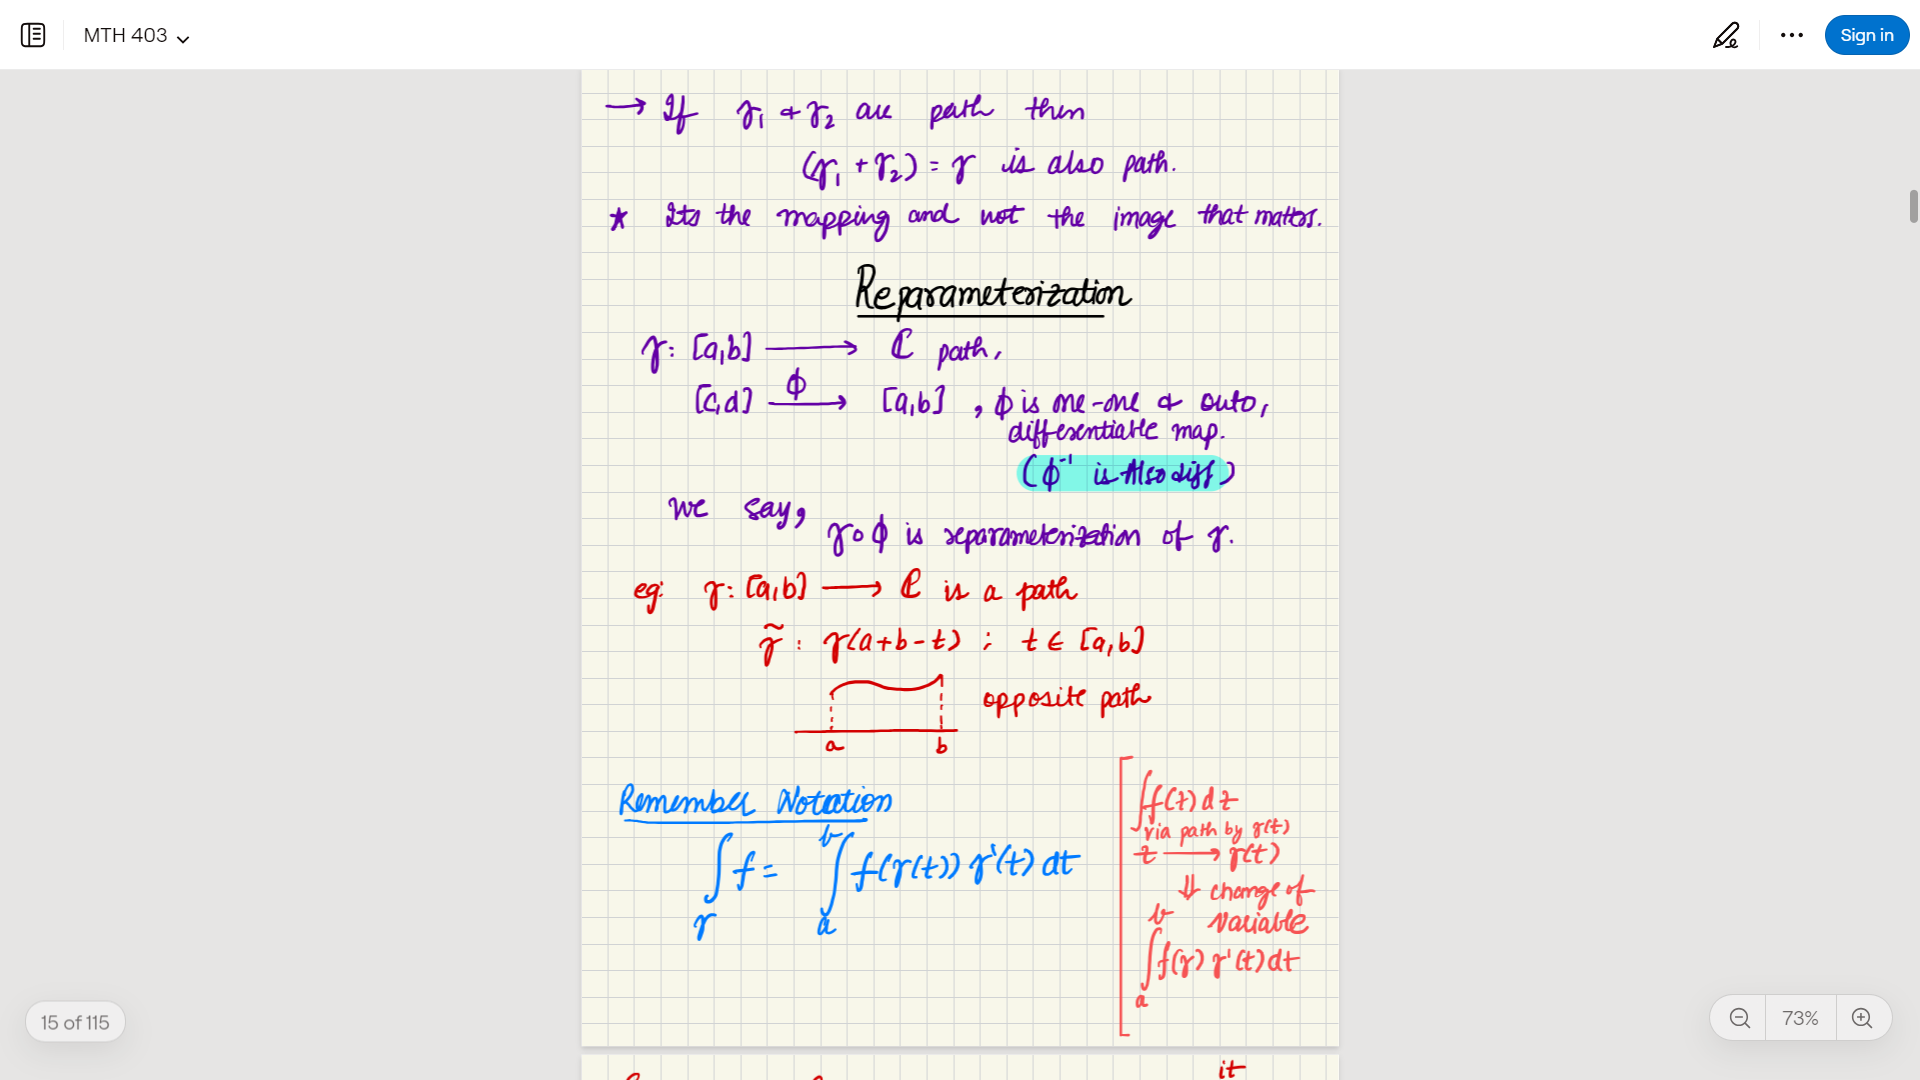 MTH 403
Sign in
→ If γ₁ & γ₂ are path then
(γ₁ + γ₂) = γ is also path.
* Its the mapping and not the image that matters.
Reparameterization
γ: [a,b] → ℂ path,
[c,d] —ϕ→ [a,b] , ϕ is one-one & onto,
differentiable map.
(ϕ⁻¹ is Also diff)
we say,
γ∘ϕ is reparameterization of γ.
eg: γ: [a,b] → ℂ is a path
γ̃ : γ(a+b-t) ; t ∈ [a,b]
opposite path
a b
Remember Notation
∫_γ f = ∫_a^b f(γ(t)) γ'(t) dt
∫ f(z) dz
via path by γ(t)
z → γ(t)
⇓ change of
variable
∫_a^b f(γ) γ'(t) dt
15 of 115
73%
it